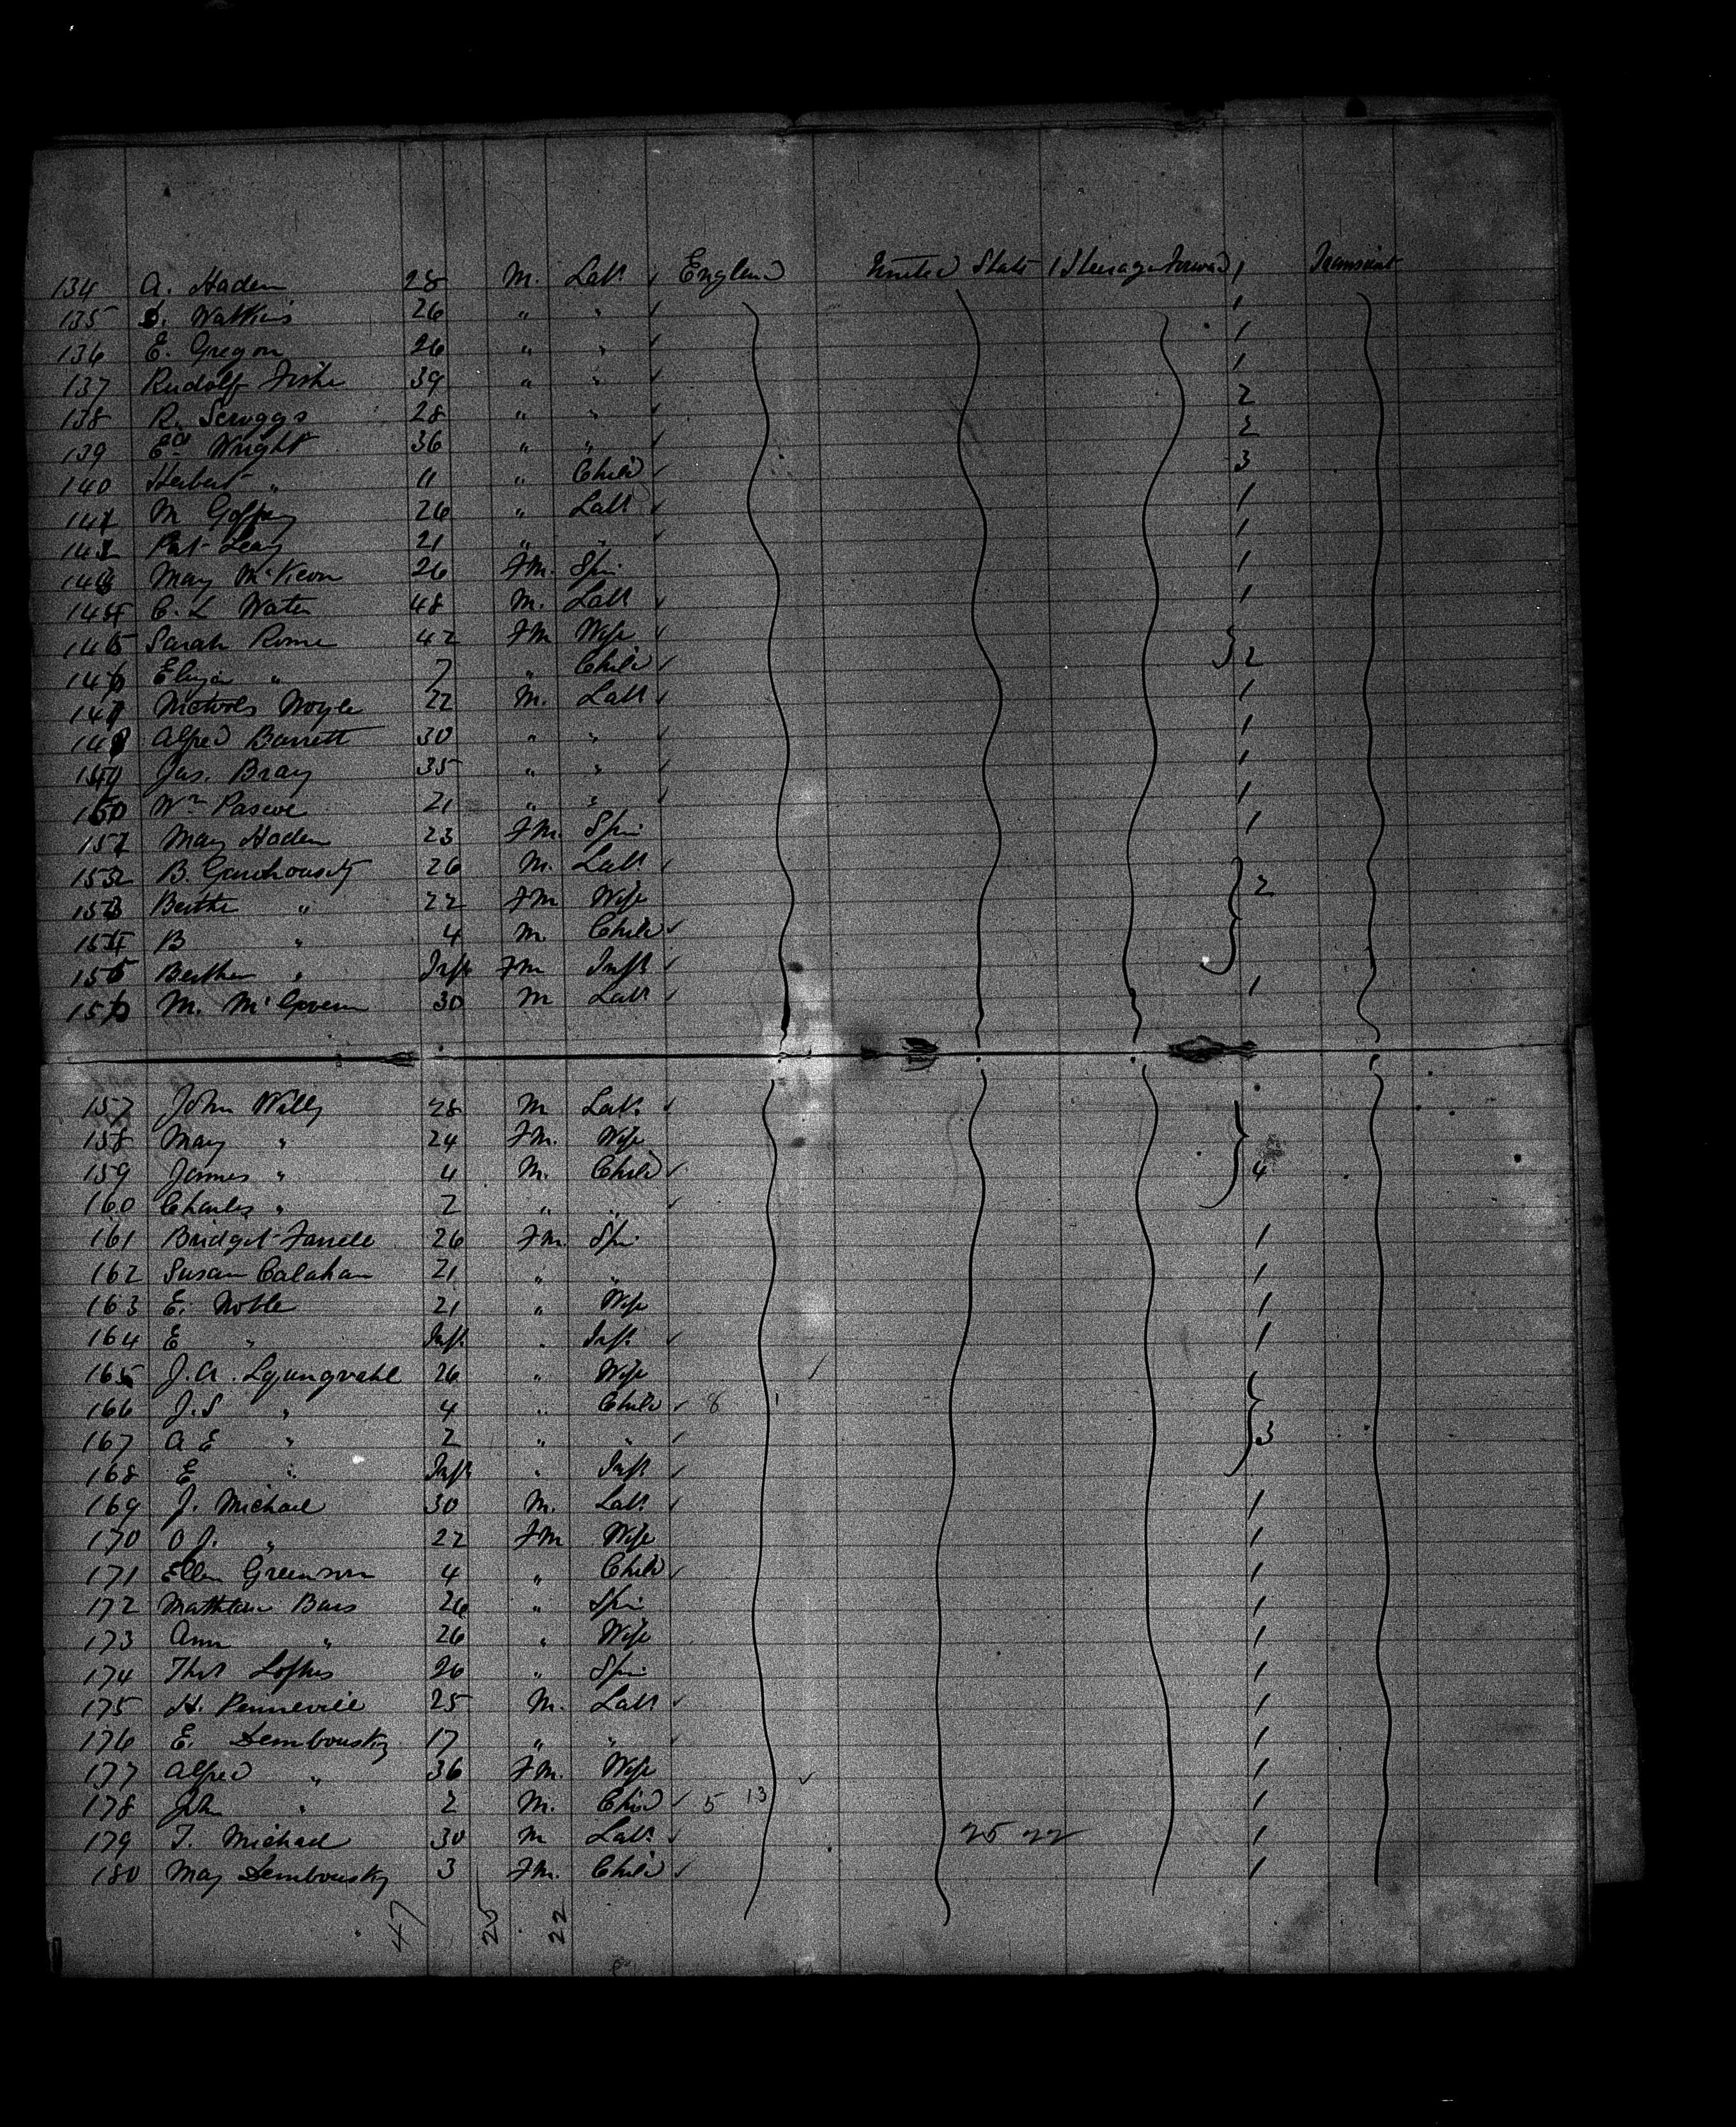 134 A. Haden 28 M. Labr ✓ England United States (Steerage Forward) 1 Transient
135 S. Watkins 26 " " ✓ 1
136 E. Gregon 26 " " ✓ 1
137 Rudolf Fiske 39 " " ✓ 1
138 R. Scruggs 28 " " ✓ 2
139 Ed Wright 36 " " ✓ 2
140 Herbert " 11 " Child ✓ 3
141 M 26 " Labr ✓ 1
142 Pat Leay 21 " " ✓ 1
143 Mary McKeon 26 FM. Spi 1
144 C. L Water 48 M. Labr ✓ 1
145 Sarah Rome 42 FM Wife ✓
146 Eliza " 7 " Child ✓ 2
147 Nicholas Moyle 22 M. Labr ✓ 1
148 Alfred Barrett 30 " " ✓ 1
149 Jas. Bray 35 " " ✓ 1
150 Wm Pascoe 21 " " ✓ 1
151 Mary Haden 23 FM. Spi 1
152 B. 26 M. Labr ✓
153 Berthe " 22 FM Wife 2
154 B " 4 M. Child ✓
155 Berther " Inft FM Inft ✓
156 M. McGovern 30 M Labr ✓ 1
157 John Willy 28 M Labr ✓
158 Mary " 24 FM. Wife
159 James " 4 M. Child ✓ 4
160 Charles " 2 " " ✓
161 Bridget Farrell 26 FM. Spi 1
162 Susan Calahan 21 " " 1
163 E. Noble 21 " Wife 1
164 E " Inft. " Inft. ✓ 1
165 J. A. Lyungvahl 26 " Wife ✓
166 J. S " 4 " Child ✓ 8 1
167 A E " 2 " " ✓ 3
168 E " Inft " Inft ✓
169 J. Michael 30 M. Labr ✓ 1
170 O J. " 22 FM Wife 1
171 Ellen Greenson 4 " Child ✓ 1
172 Bars 26 " Spi 1
173 Ann " 26 " Wife 1
174 Thos Loftus 26 " Spi 1
175 H. Penneville 25 M. Labr ✓ 1
176 E. Dembousky 17 " " ✓ 1
177 Alfred " 36 FM. Wife ✓ 1
178 John " 2 M. Child ✓ 5 13 1
179 T. Michael 30 M Labr ✓ 25 22 1
180 May Dembousky 3 FM. Child ✓ 1
47 25 22